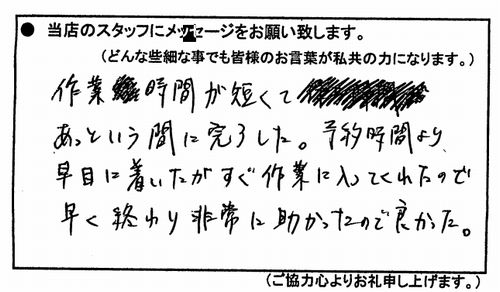 ● 当店のスタッフにメッセージをお願い致します。
（どんな些細な事でも皆様のお言葉が私共の力になります。）
作業時間が短くて
あっという間に完了した。予約時間より
早目に着いたがすぐ作業に入ってくれたので
早く終わり非常に助かったので良かった。
（ご協力心よりお礼申し上げます。）